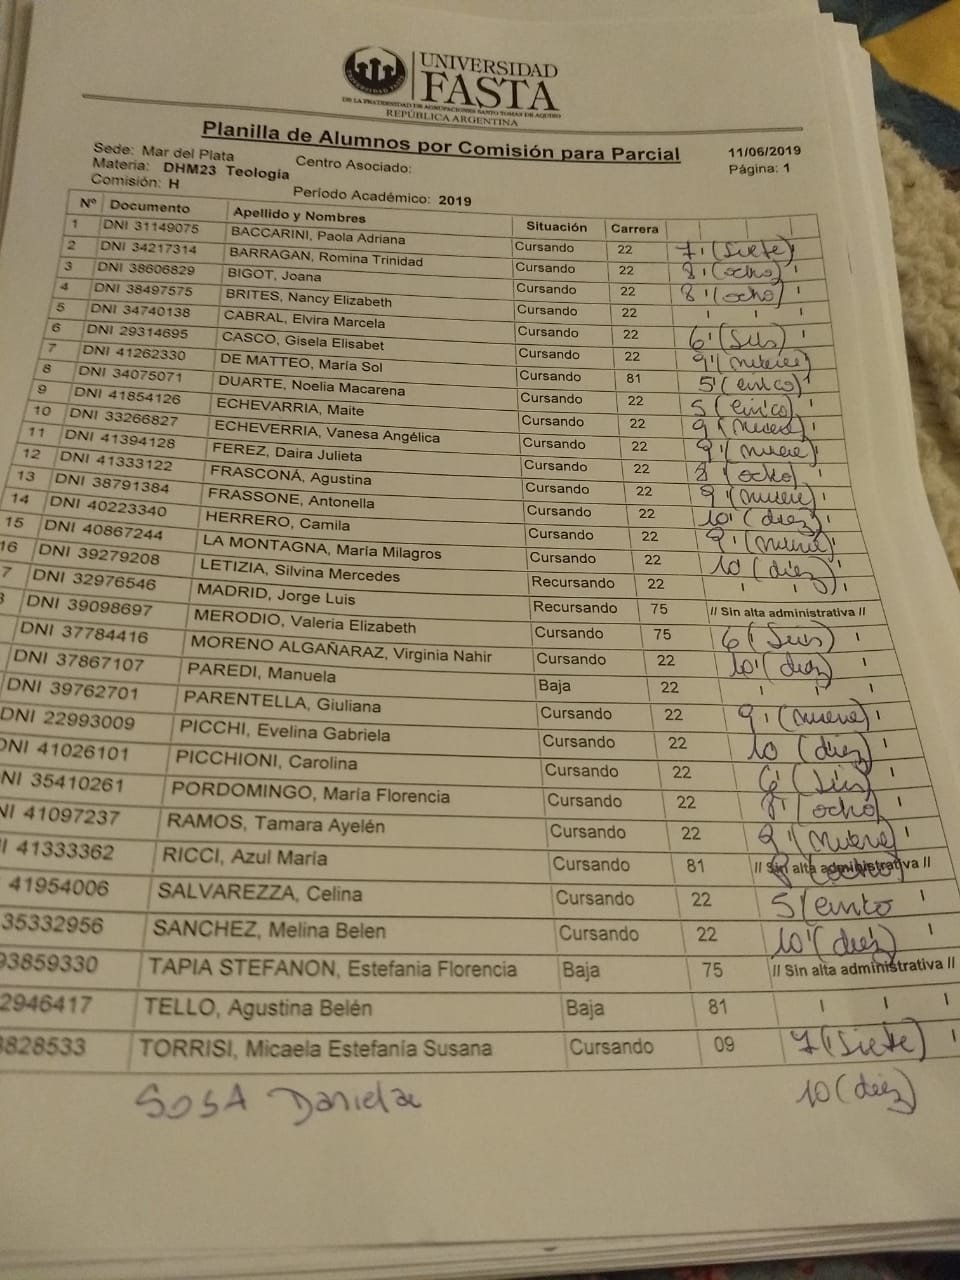 UNIVERSIDAD
FASTA
DE LA FRATERNIDAD DE AGRUPACIONES SANTO TOMAS DE AQUINO
REPÚBLICA ARGENTINA
Planilla de Alumnos por Comisión para Parcial
11/06/2019
Sede: Mar del Plata Centro Asociado:
Página: 1
Materia: DHM23 Teología
Comisión: H Período Académico: 2019
Nº Documento Apellido y Nombres Situación Carrera
1 DNI 31149075 BACCARINI, Paola Adriana Cursando 22 7 (Siete)
2 DNI 34217314 BARRAGAN, Romina Trinidad Cursando 22 8 (ocho)
3 DNI 38606829 BIGOT, Joana Cursando 22 8 (ocho)
4 DNI 38497575 BRITES, Nancy Elizabeth Cursando 22
5 DNI 34740138 CABRAL, Elvira Marcela Cursando 22 6 (Seis)
6 DNI 29314695 CASCO, Gisela Elisabet Cursando 22 9 (nueve)
7 DNI 41262330 DE MATTEO, María Sol Cursando 81 5 (cinco)
8 DNI 34075071 DUARTE, Noelia Macarena Cursando 22 5 (cinco)
9 DNI 41854126 ECHEVARRIA, Maite Cursando 22 9 (nueve)
10 DNI 33266827 ECHEVERRIA, Vanesa Angélica Cursando 22 9 (nueve)
11 DNI 41394128 FEREZ, Daira Julieta Cursando 22 8 (ocho)
12 DNI 41333122 FRASCONÁ, Agustina Cursando 22 9 (nueve)
13 DNI 38791384 FRASSONE, Antonella Cursando 22 10 (diez)
14 DNI 40223340 HERRERO, Camila Cursando 22 9 (nueve)
15 DNI 40867244 LA MONTAGNA, María Milagros Cursando 22 10 (diez)
16 DNI 39279208 LETIZIA, Silvina Mercedes Recursando 22
7 DNI 32976546 MADRID, Jorge Luis Recursando 75 // Sin alta administrativa //
8 DNI 39098697 MERODIO, Valeria Elizabeth Cursando 75 6 (Seis)
DNI 37784416 MORENO ALGAÑARAZ, Virginia Nahir Cursando 22 10 (diez)
DNI 37867107 PAREDI, Manuela Baja 22
DNI 39762701 PARENTELLA, Giuliana Cursando 22 9 (nueve)
DNI 22993009 PICCHI, Evelina Gabriela Cursando 22 10 (diez)
DNI 41026101 PICCHIONI, Carolina Cursando 22 6 (Seis)
NI 35410261 PORDOMINGO, María Florencia Cursando 22 8 (ocho)
NI 41097237 RAMOS, Tamara Ayelén Cursando 22 9 (nueve)
I 41333362 RICCI, Azul María Cursando 81 // Sin alta administrativa // 8 (ocho)
41954006 SALVAREZZA, Celina Cursando 22 5 (cinco
35332956 SANCHEZ, Melina Belen Cursando 22 10 (diez)
93859330 TAPIA STEFANON, Estefania Florencia Baja 75 // Sin alta administrativa //
2946417 TELLO, Agustina Belén Baja 81
8828533 TORRISI, Micaela Estefanía Susana Cursando 09 7 (Siete)
SOSA Daniela 10 (diez)